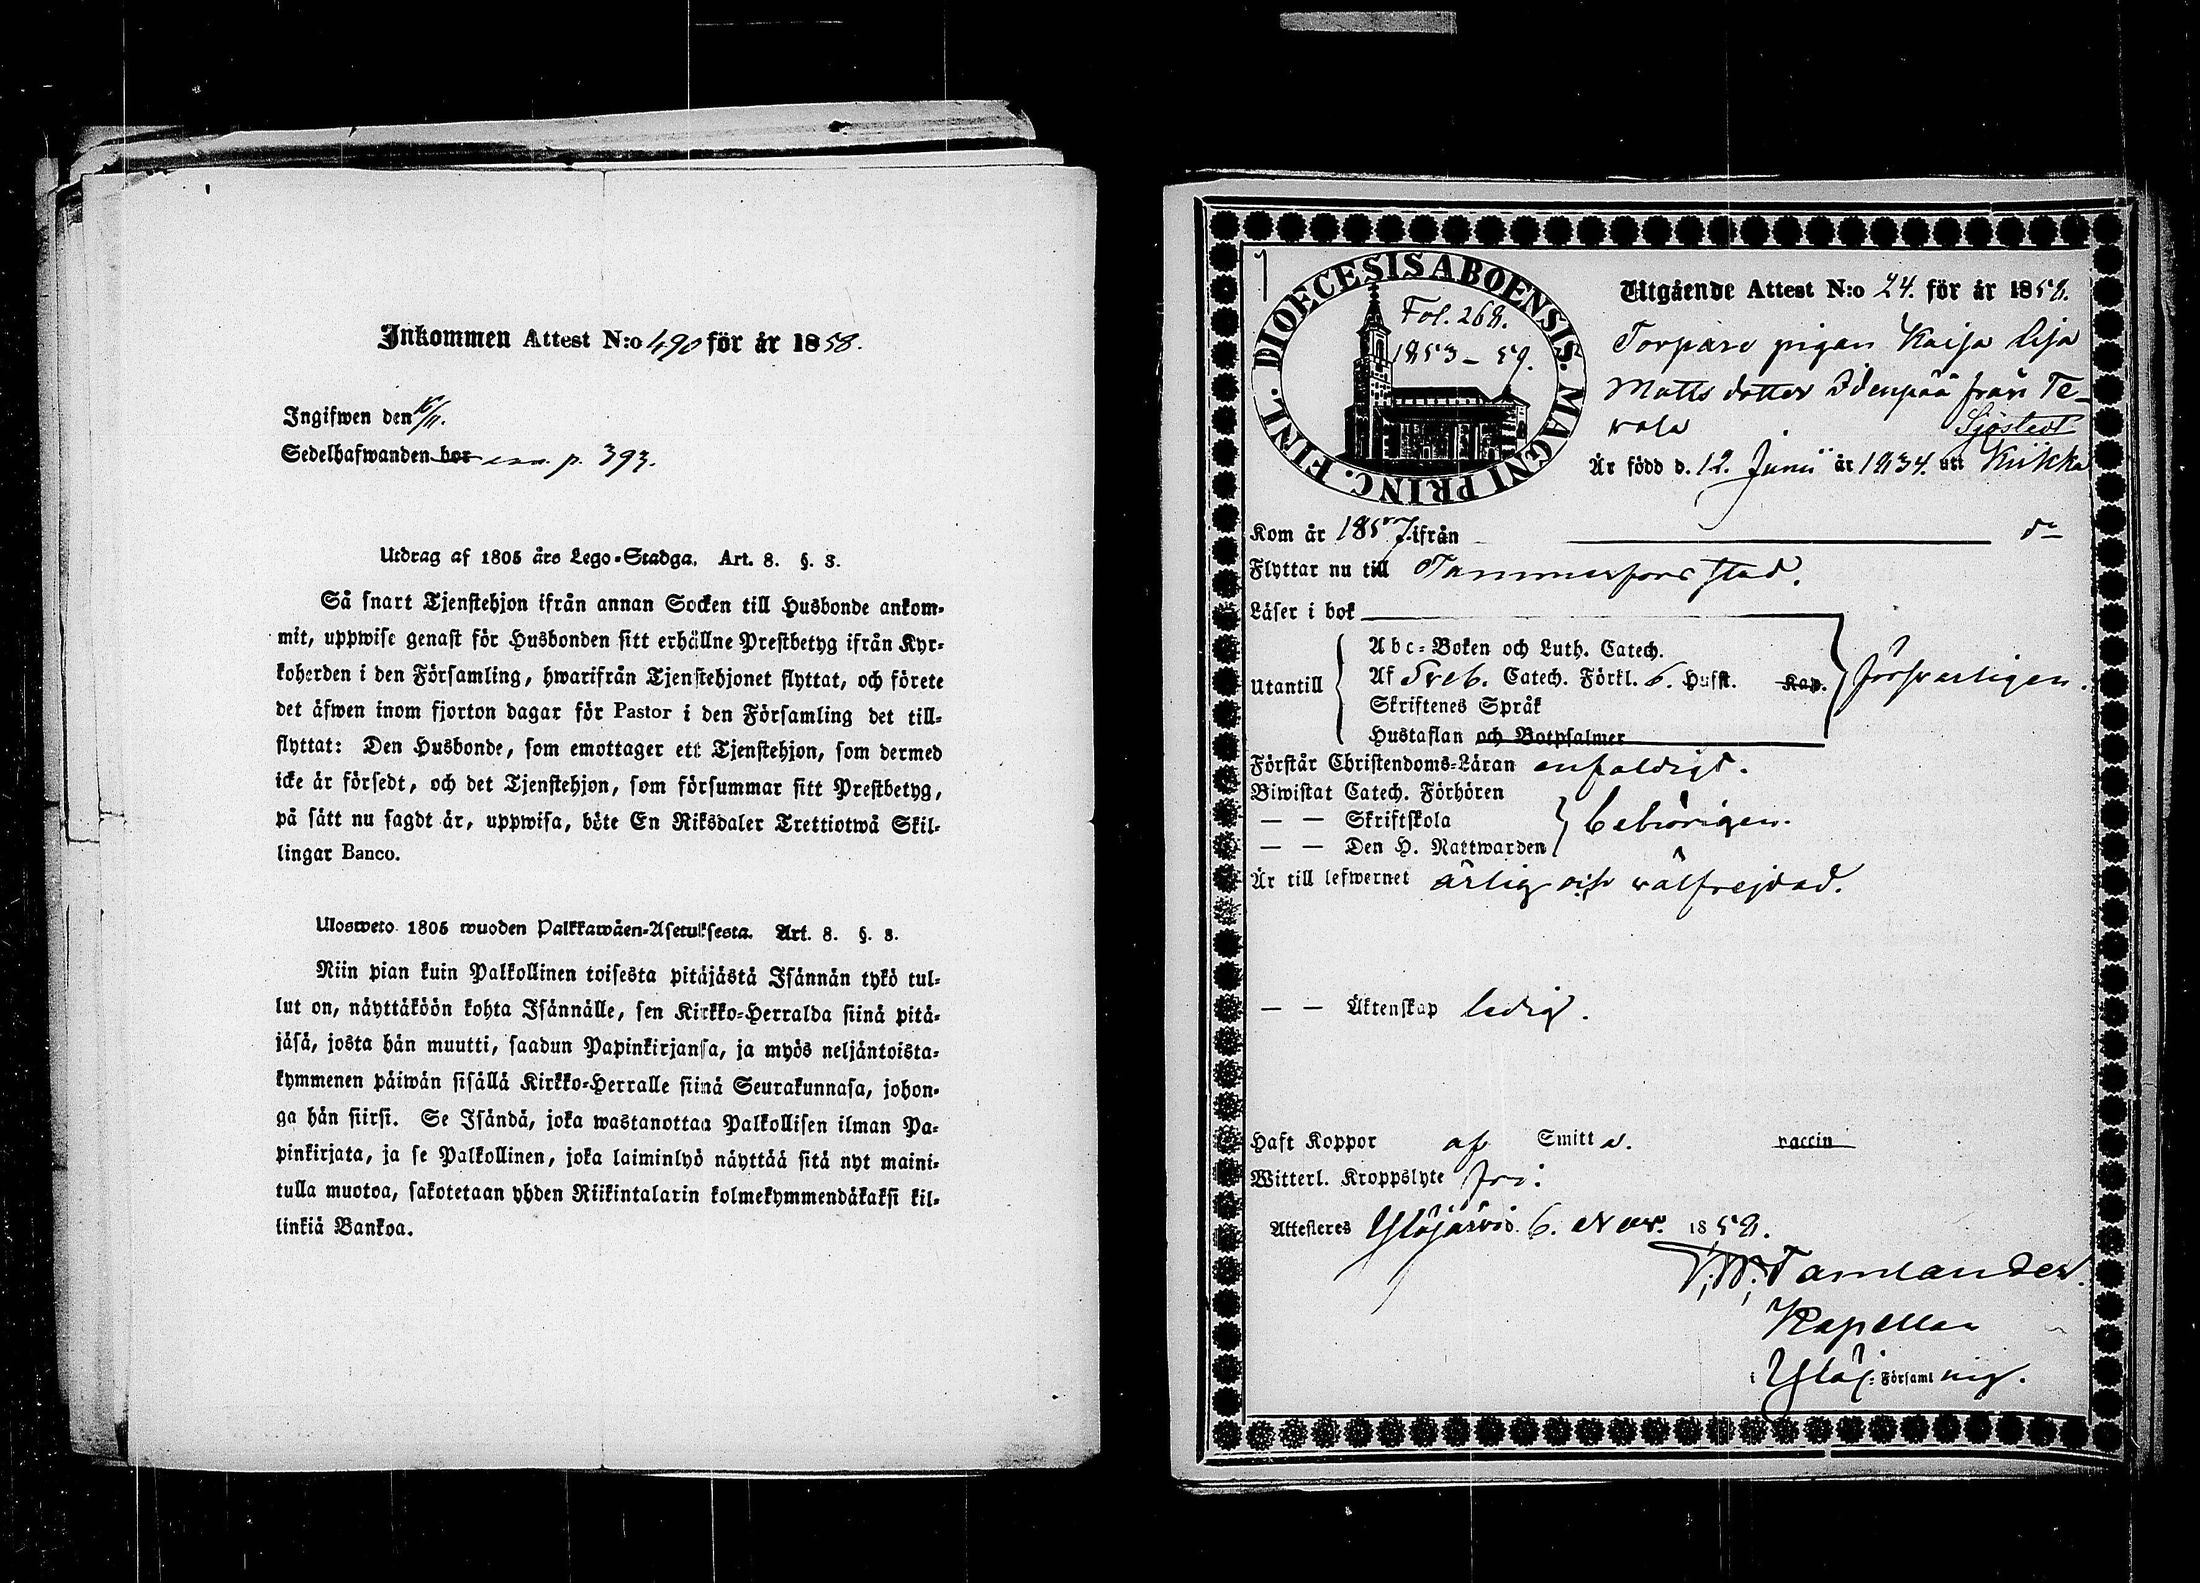 Inkommen Attest N:o 490 för år 1858.
Ingifwen den /11.
Sedelhafwanden bor p. 393.
Utdrag af 1805 års Lego-Stadga. Art. 8. §. 3.
Så snart Tjenstehjon ifrån annan Socken till Husbonde ankom-
mit, uppwise genast för Husbonden sitt erhållne Prestbetyg ifrån Kyr-
koherden i den Församling, hwarifrån Tjenstehjonet flyttat, och förete
det äfwen inom fjorton dagar för Pastor i den Församling det till-
flyttat: Den Husbonde, som emottager ett Tjenstehjon, som dermed
icke är försedt, och det Tjenstehjon, som försummar sitt Prestbetyg,
på sätt nu sagdt är, uppwisa, böte En Riksdaler Trettiotwå Skil-
lingar Banco.
Ulosweto 1805 wuoden Palkkawäen-Asetuksesta. Art. 8. §. 3.
Niin pian kuin Palkollinen toisesta pitäjästä Isännän tykö tul-
lut on, näyttäköön kohta Isännälle, sen Kirkko-Herralda siinä pitä-
jäsä, josta hän muutti, saadun Papinkirjansa, ja myös neljäntoista-
kymmenen päiwän sisällä Kirkko-Herralle siinä Seurakunnasa, johon-
ga hän siirsi. Se Isändä, joka wastanottaa Palkollisen ilman Pa-
pinkirjata, ja se Palkollinen, joka laiminlyö näyttää sitä nyt maini-
tulla muotoa, sakotetaan yhden Riikintalarin kolmekymmendäkaksi kil-
linkiä Bankoa.
DIOECESIS ABOENSIS. MAGNI PRINC. FINL.
Fol. 268.
1853–59.
Utgående Attest N:o 24. för år 1858.
Torpare pigan Kaisa Lisa
Matts dotter Idenpää från Te-
vala Sjöstedt
Är född d. 12. Junii år 1834. uti Kiikka
Kom år 1857. ifrån do
Flyttar nu till Tammerfors stad.
Läser i bok
Utantill
Abc-Boken och Luth. Catech.
Af Sveb. Catech. Förkl. 6. Hufst. Kap. försvarligen.
Skriftenes Språk
Hustaflan och Botpsalmer
Förstår Christendoms-Läran enfaldigt.
Biwistat Catech. Förhören
— — Skriftskola behörigen.
— — Den H. Nattwarden
Är till lefwernet ärlig och välfrejdad.
— — Äktenskap ledig.
Haft Koppor af Smitta. vaccin
Witterl. Kroppslyte fri.
Attesteras Ylöjärvi d. 6. Nov. 1858.
Tamlander.
Kapellan
i Ylöj: Församlnig.